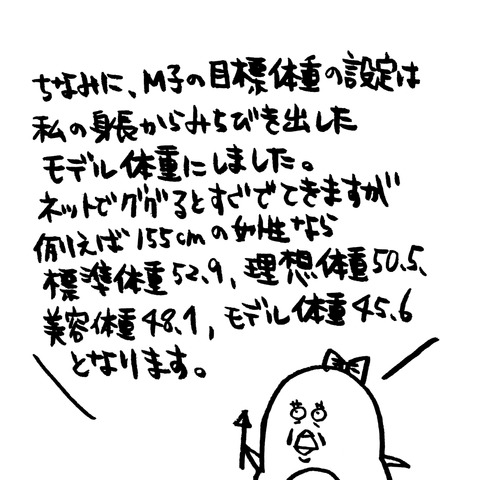 ちなみに、M子の目標体重の設定は
私の身長からみちびき出した
モデル体重にしました。
ネットでググるとすぐでてきますが
例えば155cmの女性なら
標準体重52.9, 理想体重50.5、
美容体重48.1, モデル体重45.6
となります。